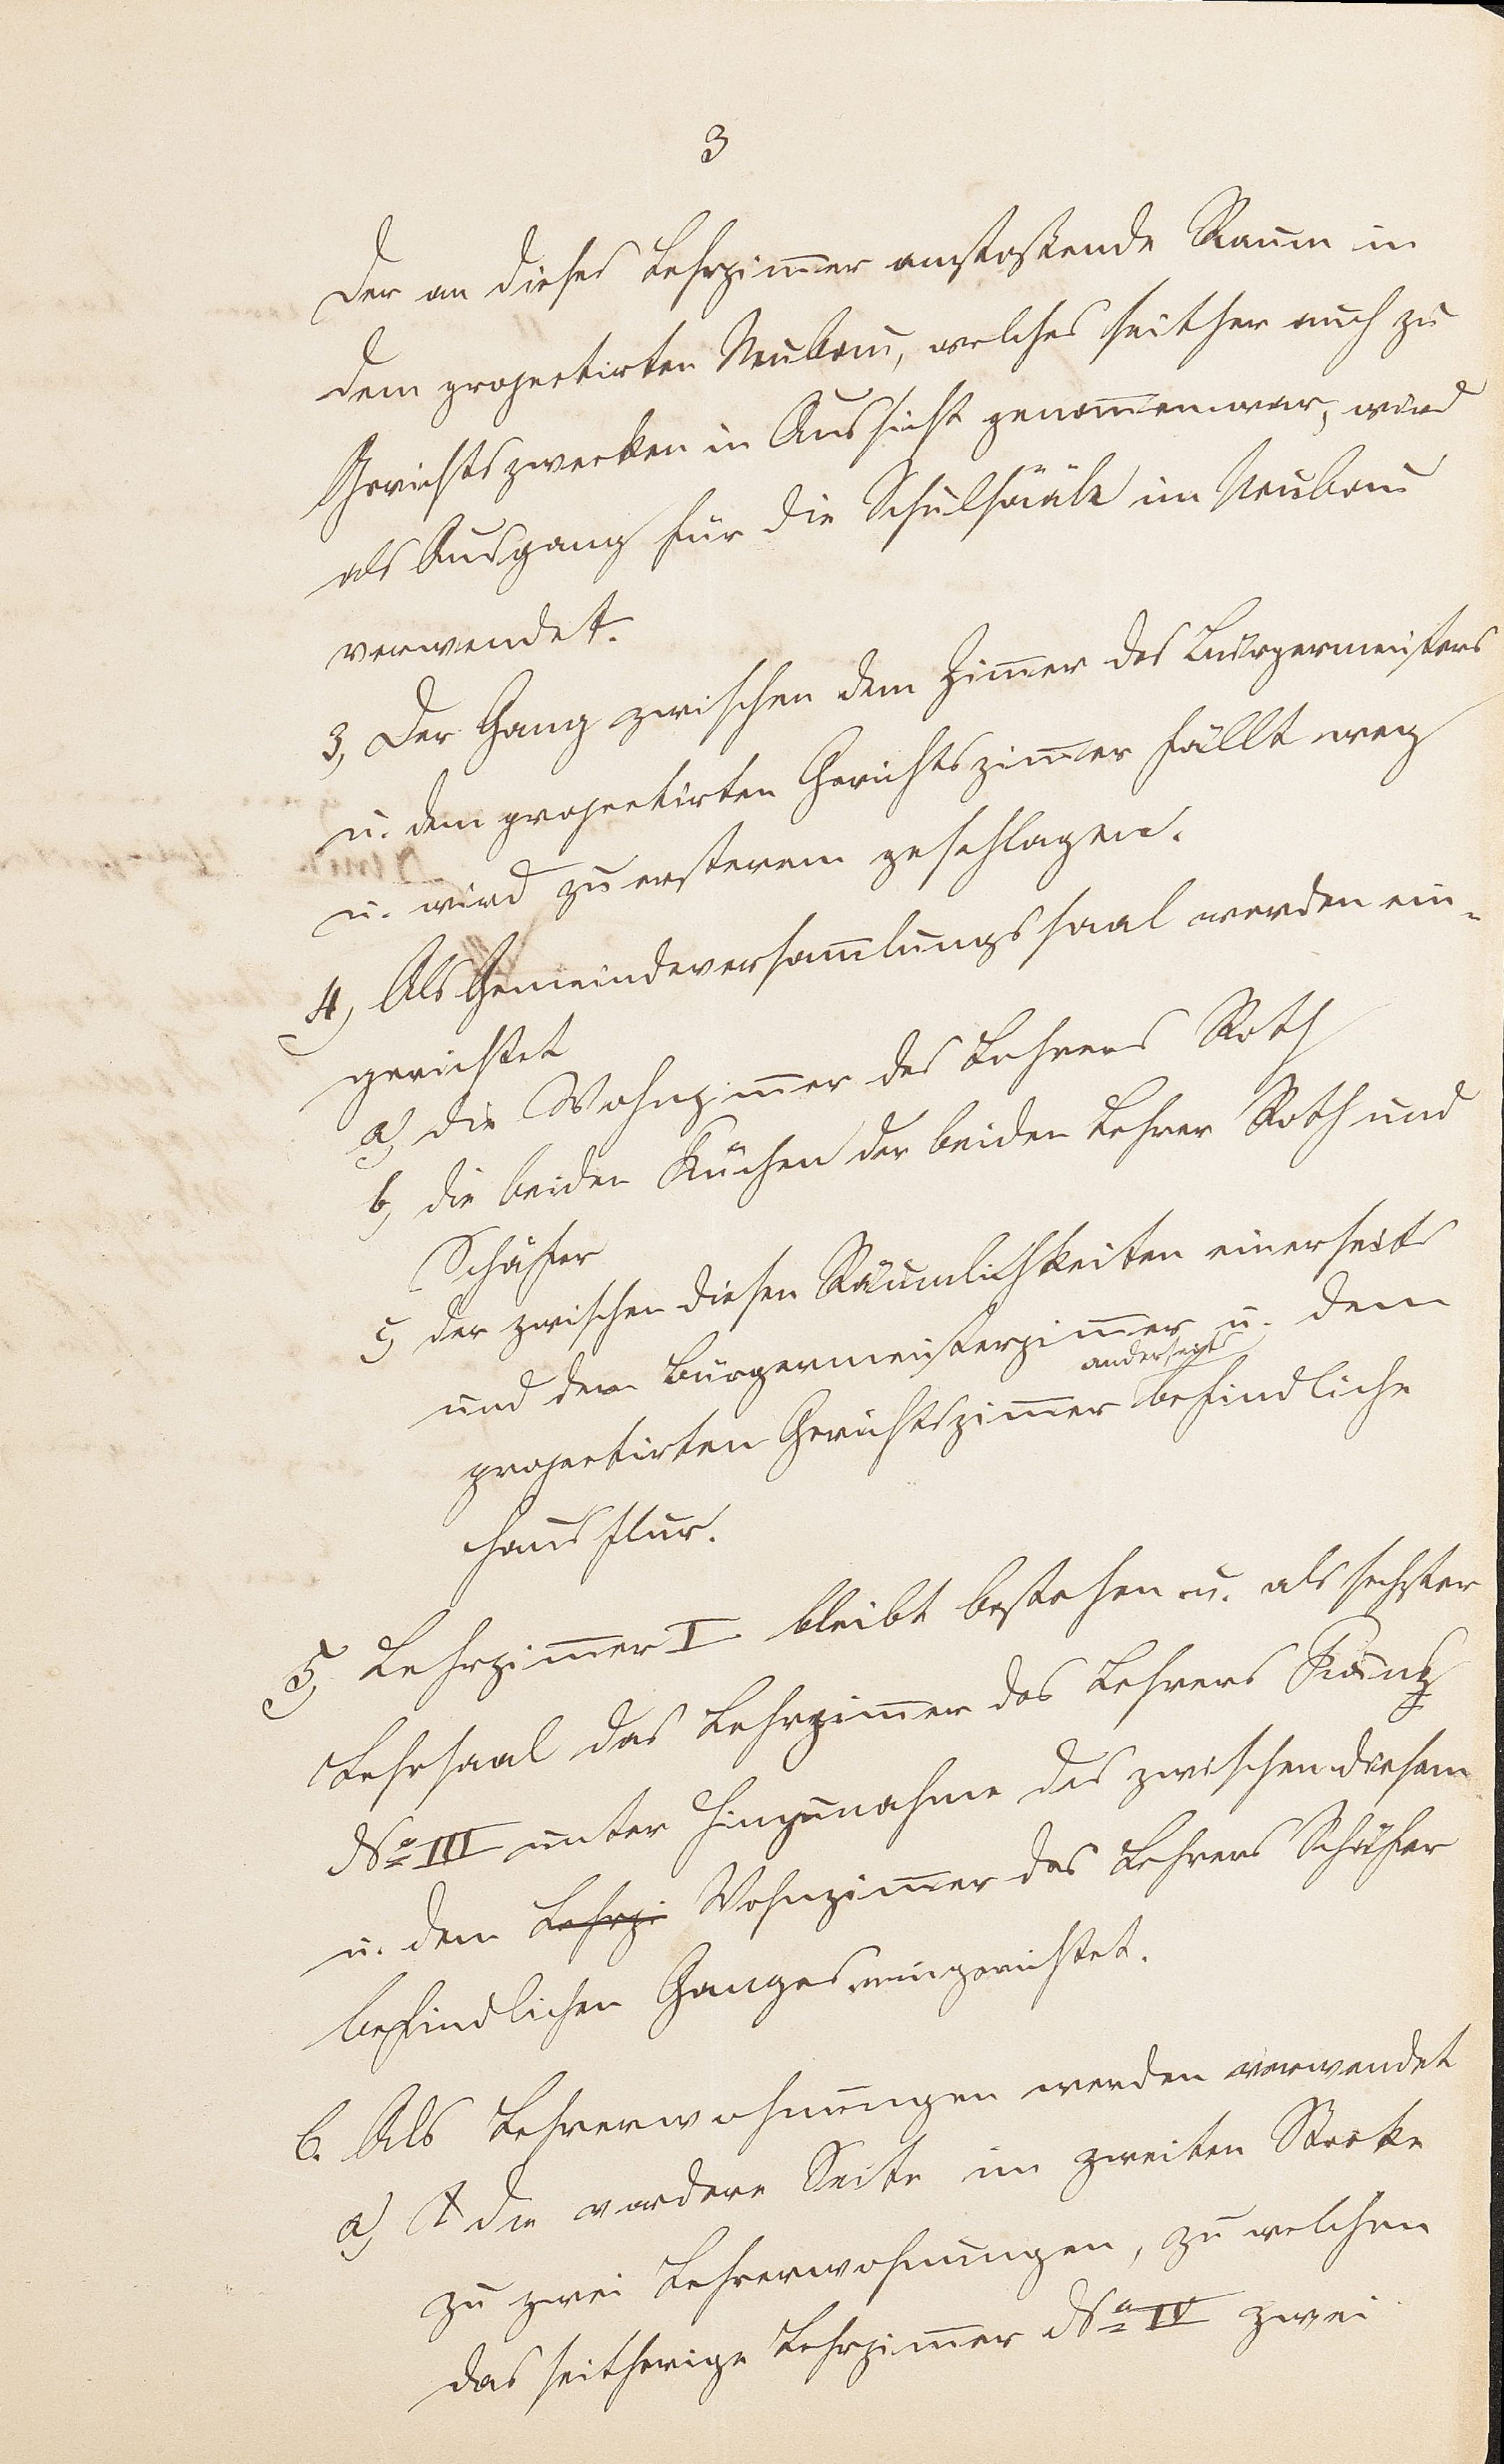 3
Der an dieses Lehrzimmer anstoßende Raum in
dem projectirten Neubau, welches seither auch zu
Gerichtszwecken in Aussicht genommen war, wird
als Ausgang für die Schulsääle im Neubau
verwendet.
3, Der Gang zwischen dem Zimmer des Bürgermeisters
u. dem projectirten Gerichtszimmer fällt weg
u. wird zu ersterem geschlagen.
4, Als Gemeindeversammlungssaal werden ein-
gerichtet
a, die Wohnzimmer des Lehrers Roth
b, die beiden Küchen der beiden Lehrer Roth und
Schäfer
c, der zwischen diesen Räumlichkeiten einerseits
und dem Bürgermeisterzimmer u. dem
anderseits
projectirten Gerichtszimmer befindliche
Hausflur.
5, Lehrzimmer I bleibt bestehen u. als sechster
Lehrsaal das Lehrzimmer des Lehrers Kunz
No III unter Hinzunahme des zwischen diesem
u. dem Lehrzi Wohnzimmer des Lehrers Schäfer
befindlichen Ganges eingerichtet.
6. Als Lehrerwohnungen werden verwendet
a, die vordere Seite im zweiten Stocke
zu zwei Lehrerwohnungen, zu welchen
das seitherige Lehrzimmer No IV zwei